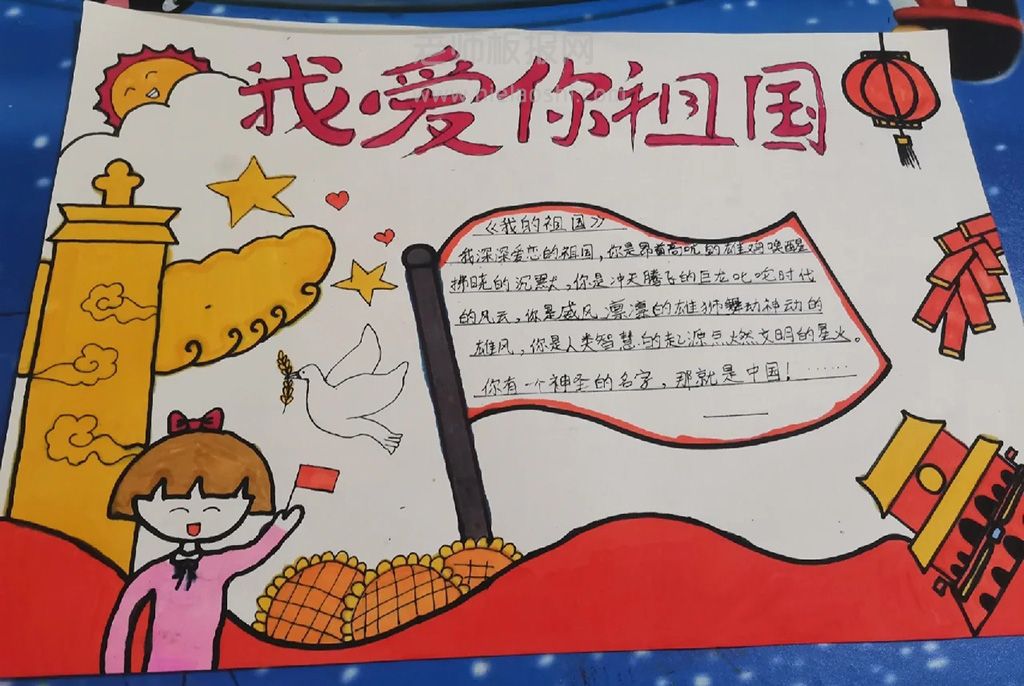 老师板报网
我爱你祖国
《我的祖国》
我深深爱恋的祖国，你是昂首高吭的雄鸡唤醒
拂晓的沉默，你是冲天腾飞的巨龙叱咤时代
的风云，你是威风凛凛的雄狮舞动神动的
雄风，你是人类智慧的起源点燃文明的星火。
你有一个神圣的名字，那就是中国！……